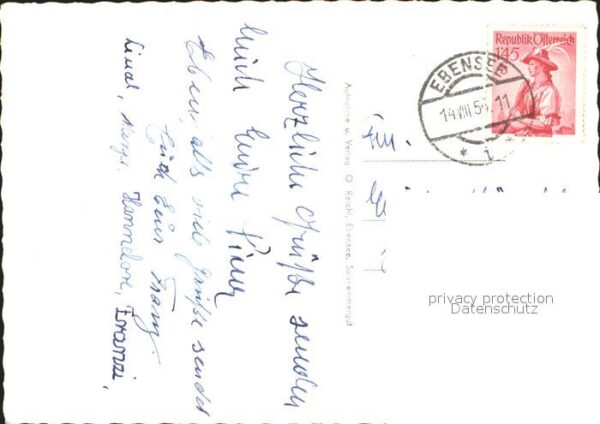 Herzliche Grüße senden
Euch Eure
Eben, als viele Grüße sendet
Euch Euer Franz.
Hannelore, Franzi,
Aufnahme u. Verlag O. Reichl, Ebensee, Salzkammergut
Republik Österreich
1'45
EBENSEE
14.VIII.55.11
* 1
privacy protection
Datenschutz